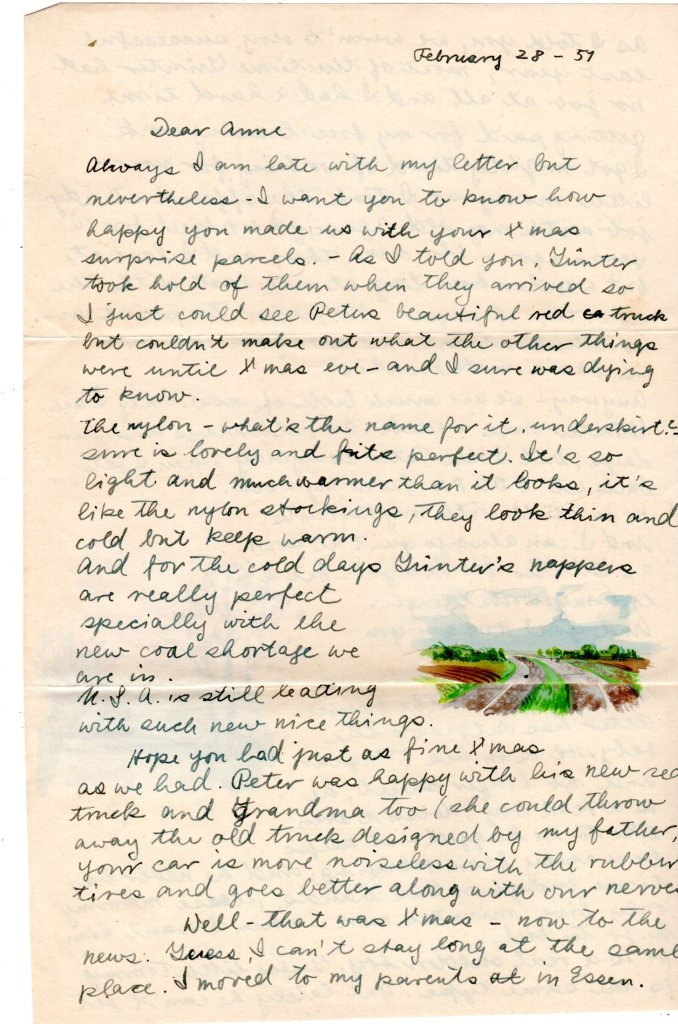 February 28 - 51
Dear Anne
Always I am late with my letter but
nevertheless - I want you to know how
happy you made us with your X'mas
surprise parcels. - As I told you, Günter
took hold of them when they arrived so
I just could see Peters beautiful red truck
but couldn't make out what the other things
were until X'mas eve - and I sure was dying
to know.
The nylon - what's the name for it, underskirt? -
sure is lovely and fits perfect. It's so
light and much warmer than it looks, it's
like the nylon stockings, they look thin and
cold but keep warm.
And for the cold days Günter's nappers
are really perfect
specially with the
new coal shortage we
are in.
U.S.A. is still leading
with such new nice things.
Hope you had just as fine X'mas
as we had. Peter was happy with his new red
truck and Grandma too (she could throw
away the old truck designed by my father,
your car is more noiseless with the rubber
tires and goes better along with our nerves
Well - that was X'mas - now to the
news. Guess, I can't stay long at the same
place. I moved to my parents at in Essen.